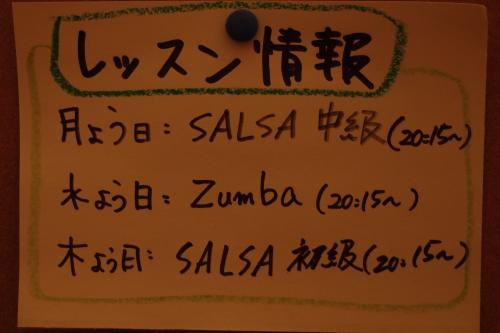 レッスン情報
月よう日: SALSA 中級(20:15〜)
水よう日: Zumba (20:15〜)
木よう日: SALSA 初級(20:15〜)